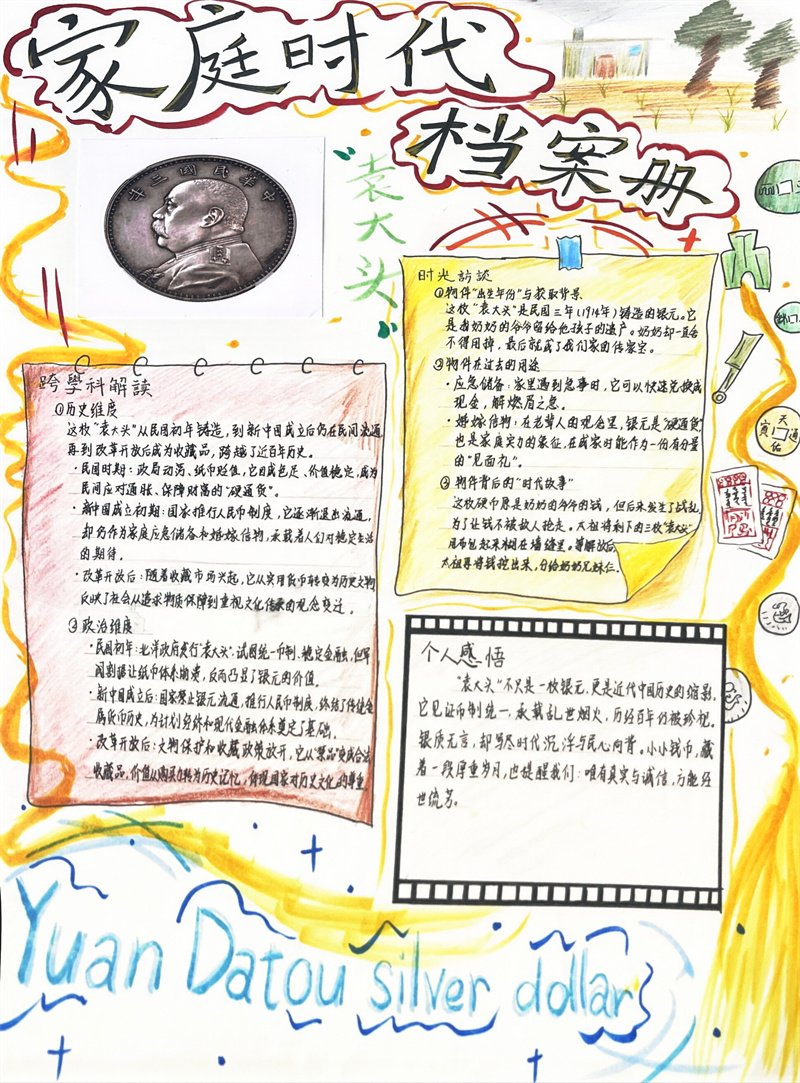 家庭时代
档案册
中華民國三年
“袁大头”
时光访谈
①物件“出生年份”与获取背景
这枚“袁大头”是民国三年(1914年)铸造的银元。它
是我奶奶的爷爷留给他孩子的遗产。奶奶却一直舍
不得用掉,最后就成了我们家的传家宝。
②物件在过去的用途
·应急储备:家里遇到急事时,它可以快速兑换成
现金,解燃眉之急。
·婚嫁信物:在老辈人的观念里,银元是“硬通货”
也是家庭实力的象征,在成家时能作为一份有分量
的“见面礼”。
③物件背后的“时代故事”
这枚硬币原是奶奶的爷爷的钱,但后来发生了战乱
为了让钱不被敌人抢走。太祖将剩下的三枚“袁大头”
用布包起来糊在墙缝里。等解放后
太祖再将钱挖出来,分给奶奶兄妹仨。
跨學科解读
①历史维度
这枚“袁大头”从民国初年铸造,到新中国成立后仍在民间流通
再到改革开放后成为收藏品,跨越了近百年历史。
·民国时期:政局动荡、纸币贬值,它因成色足、价值稳定,成为
民间应对通胀、保障财富的“硬通货”。
·新中国成立初期:国家推行人民币制度,它逐渐退出流通,
却仍作为家庭应急储备和婚嫁信物,承载着人们对稳定生活
的期待。
·改革开放后:随着收藏市场兴起,它从实用货币转变为历史文物
反映了社会从追求物质保障到重视文化传承的观念变迁。
②政治维度
·民国初年:北洋政府发行“袁大头”,试图统一币制、稳定金融,但军
阀割据让纸币体系崩溃,反而凸显了银元的价值。
·新中国成立后:国家禁止银元流通,推行人民币制度,终结了传统金
属货币历史,为计划经济和现代金融体系奠定了基础。
·改革开放后:文物保护和收藏政策放开,它从“禁品”变成合法
收藏品,价值从购买力转为历史记忆,体现国家对历史文化的尊重。
个人感悟
“袁大头”不只是一枚银元,更是近代中国历史的缩影,
它见证币制统一,承载乱世烟火,历经百年仍被珍视。
银质无言,却写尽时代沉浮与民心向背。小小钱币,藏
着一段厚重岁月,也提醒我们:唯有真实与诚信,方能经
世流芳。
Yuan Datou silver dollar